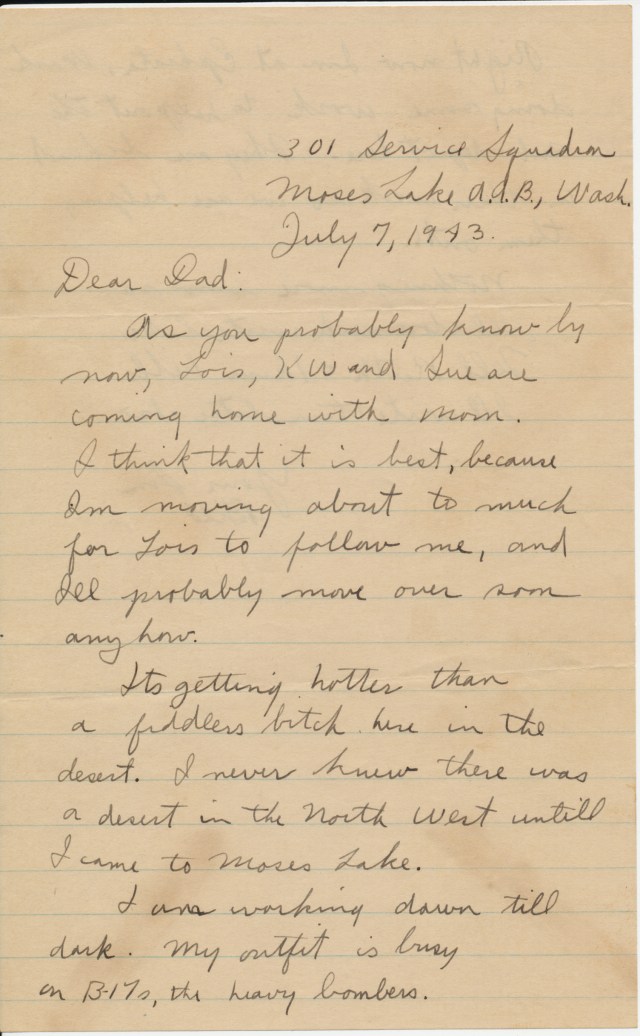 301 Service Squadron
Moses Lake A.A.B., Wash.
July 7, 1943.
Dear Dad:
As you probably know by
now, Lois, KW and Sue are
coming home with Mom.
I think that it is best, because
Im moving about to much
for Lois to follow me, and
Ill probably move over soon
any how.
Its getting hotter than
a fiddlers bitch here in the
desert. I never knew there was
a desert in the North West untill
I came to Moses Lake.
I am working dawn till
dark. My outfit is busy
on B-17s, the heavy bombers.